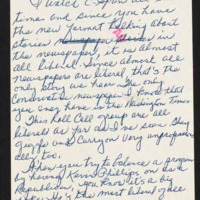 time and since you have
the new format talking about
stories in
the newspaper, it is almost
all liberal. Since almost all
newspapers are liberal, that's the
only story we hear. The only
Conservative newspaper I know that
you ever have is the Washington Times.
This Roll Call group are all
liberals as far as I've seen. They
giggle and carry on very unprofession-
ally too.
When you try to balance a program
by having Kevin Phillips on each
Republican, you know it's a
He's the most liberal of all